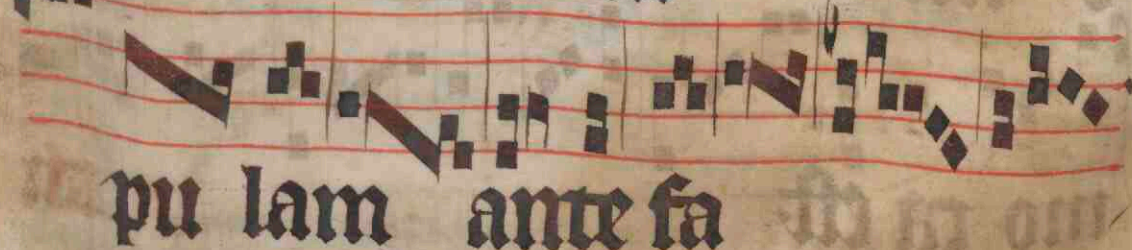 pu lam ante fa